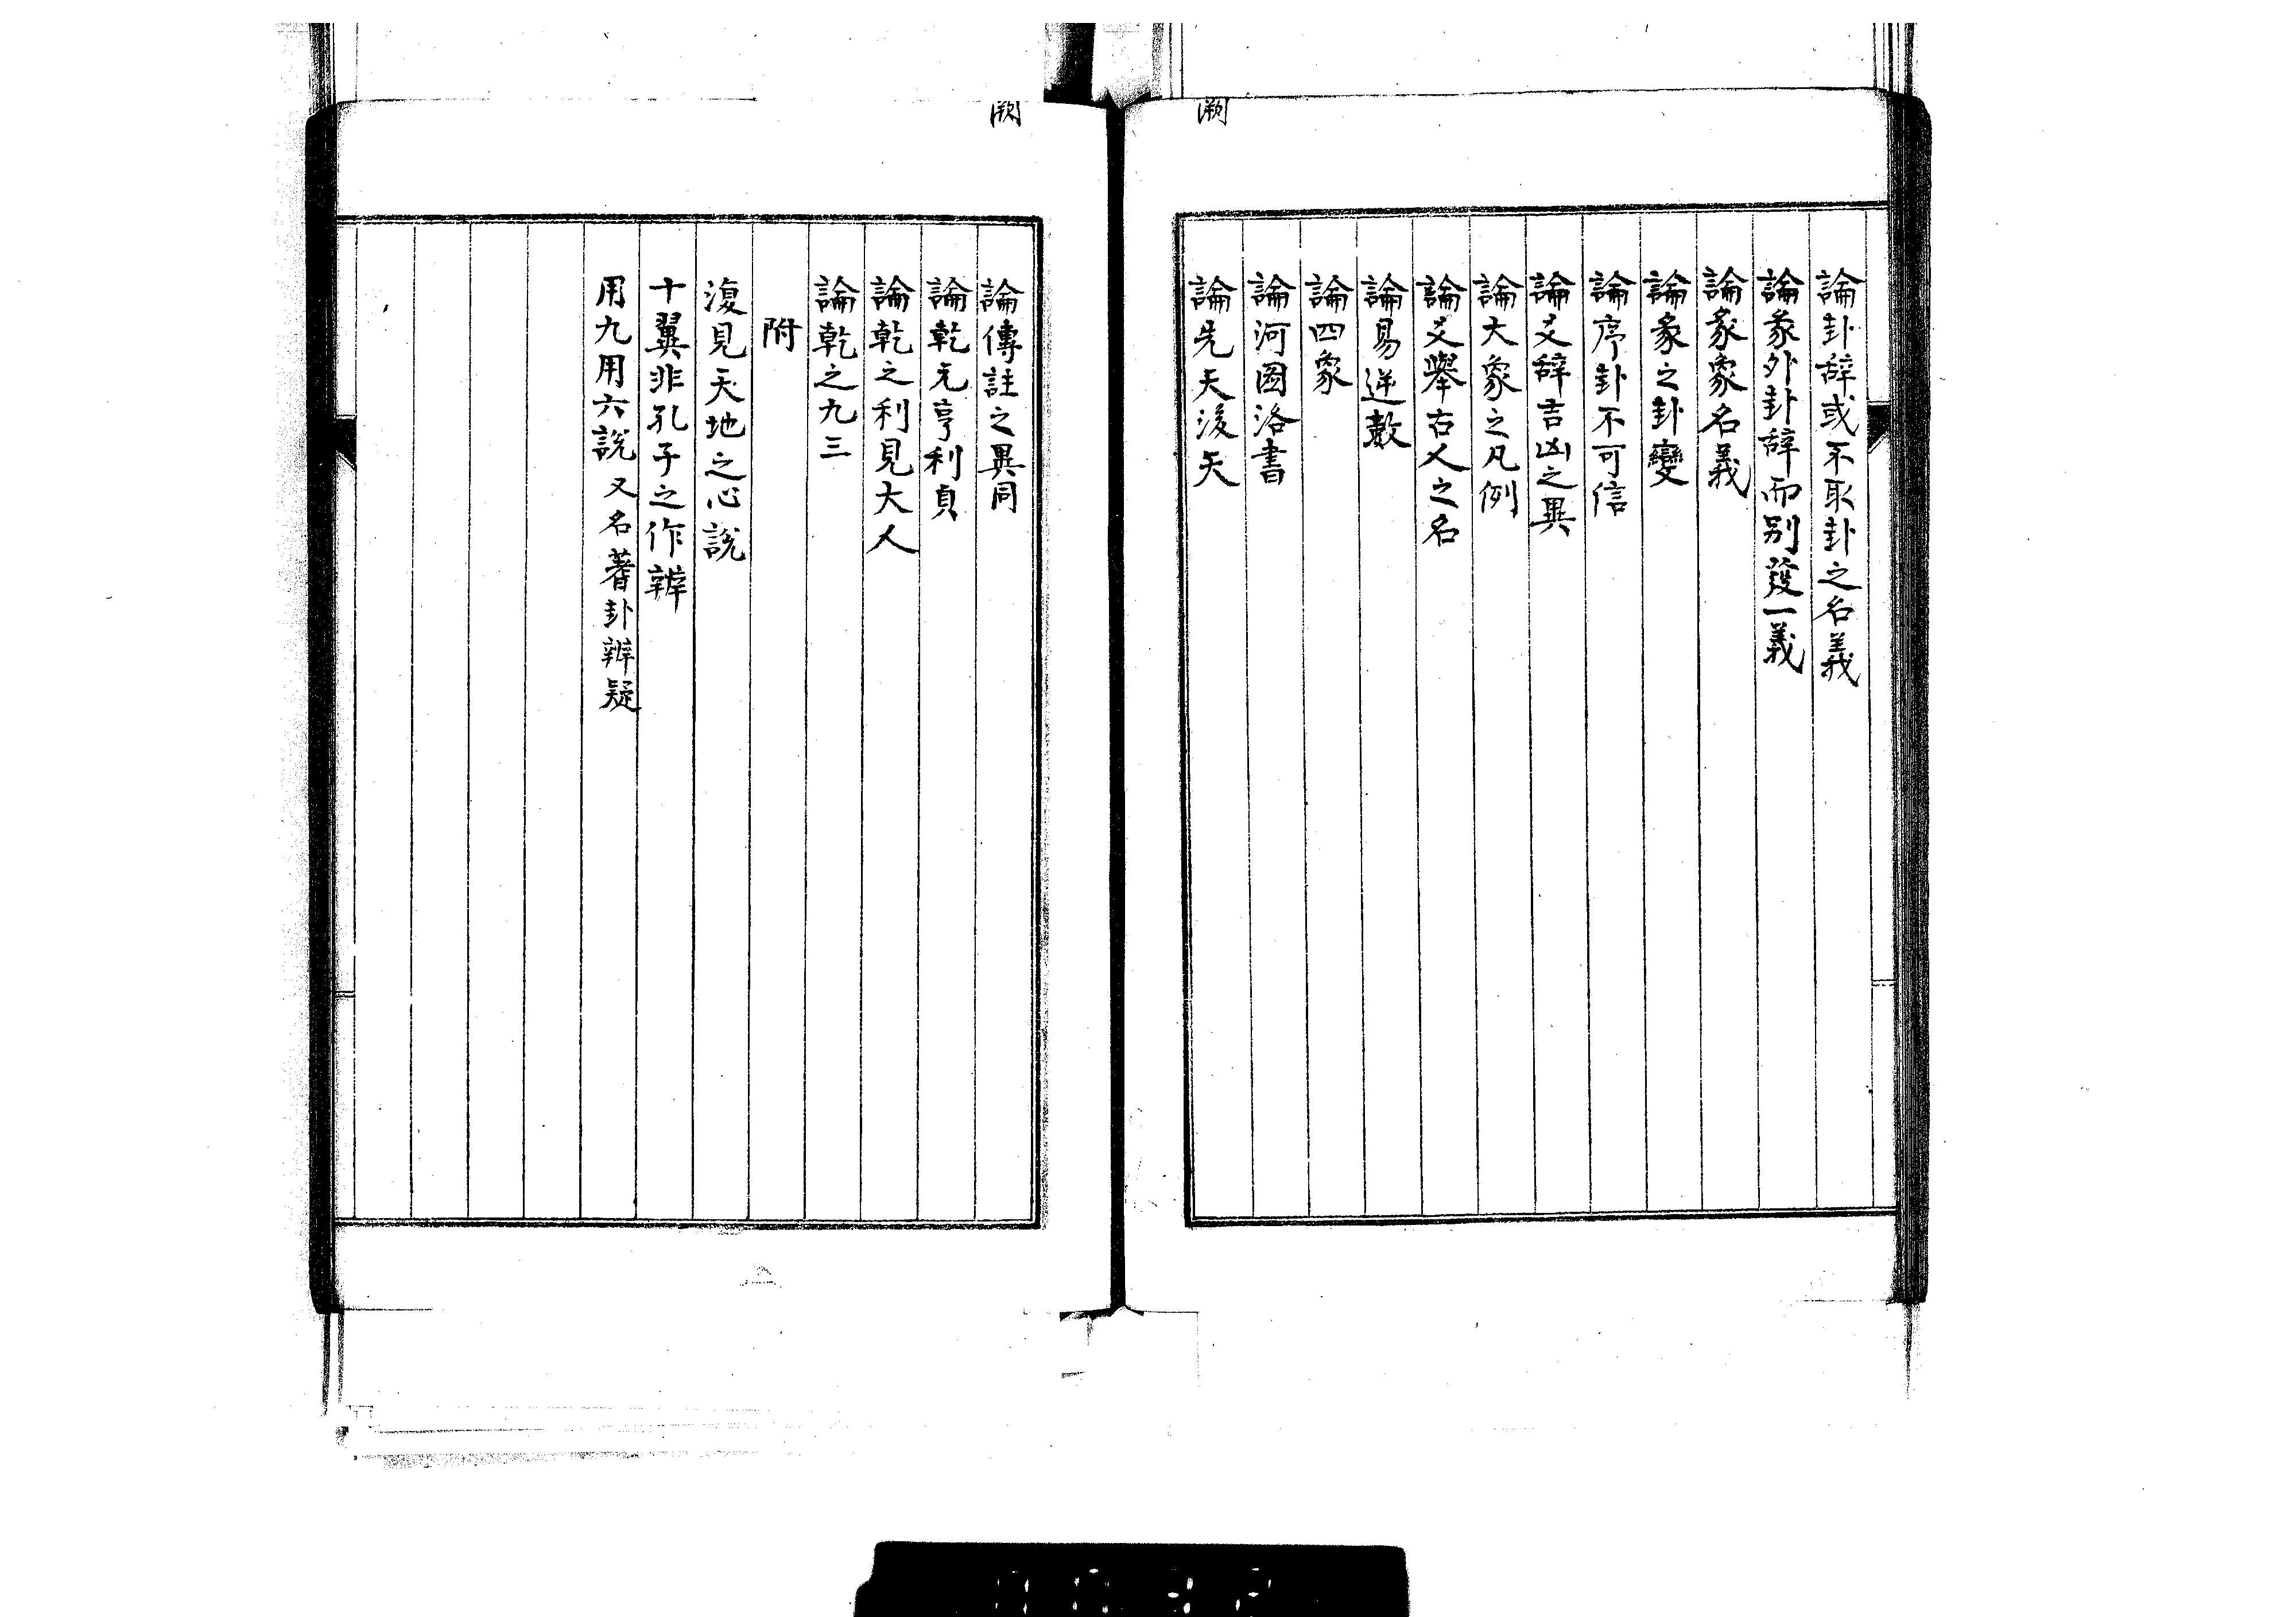 論卦辞或不取卦之名義
論彖外卦辞而别発一義
論彖象名義
論彖之卦變
論序卦不可信
論爻辞吉凶之異
論大象之凡例
論爻舉右人之名
論易逆數
論四象
論河圖洛書
論先天後天
論傳註之異同
論乾元亨利貞
論乾之利見大人
論乾之九三
附
復見天地之心說
十翼非孔子之作辨
用九用六說 又名蓍卦辨疑